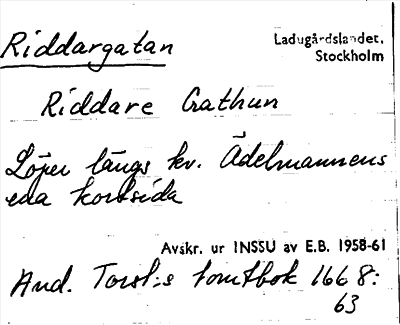 Riddargatan
Ladugårdslandet,
Stockholm
Riddare Gathun
Löper längs kv. Ädelmannens
ena kortsida
Avskr. ur INSSU av E.B. 1958-61
And. Torst:s tomtbok 1668:
63